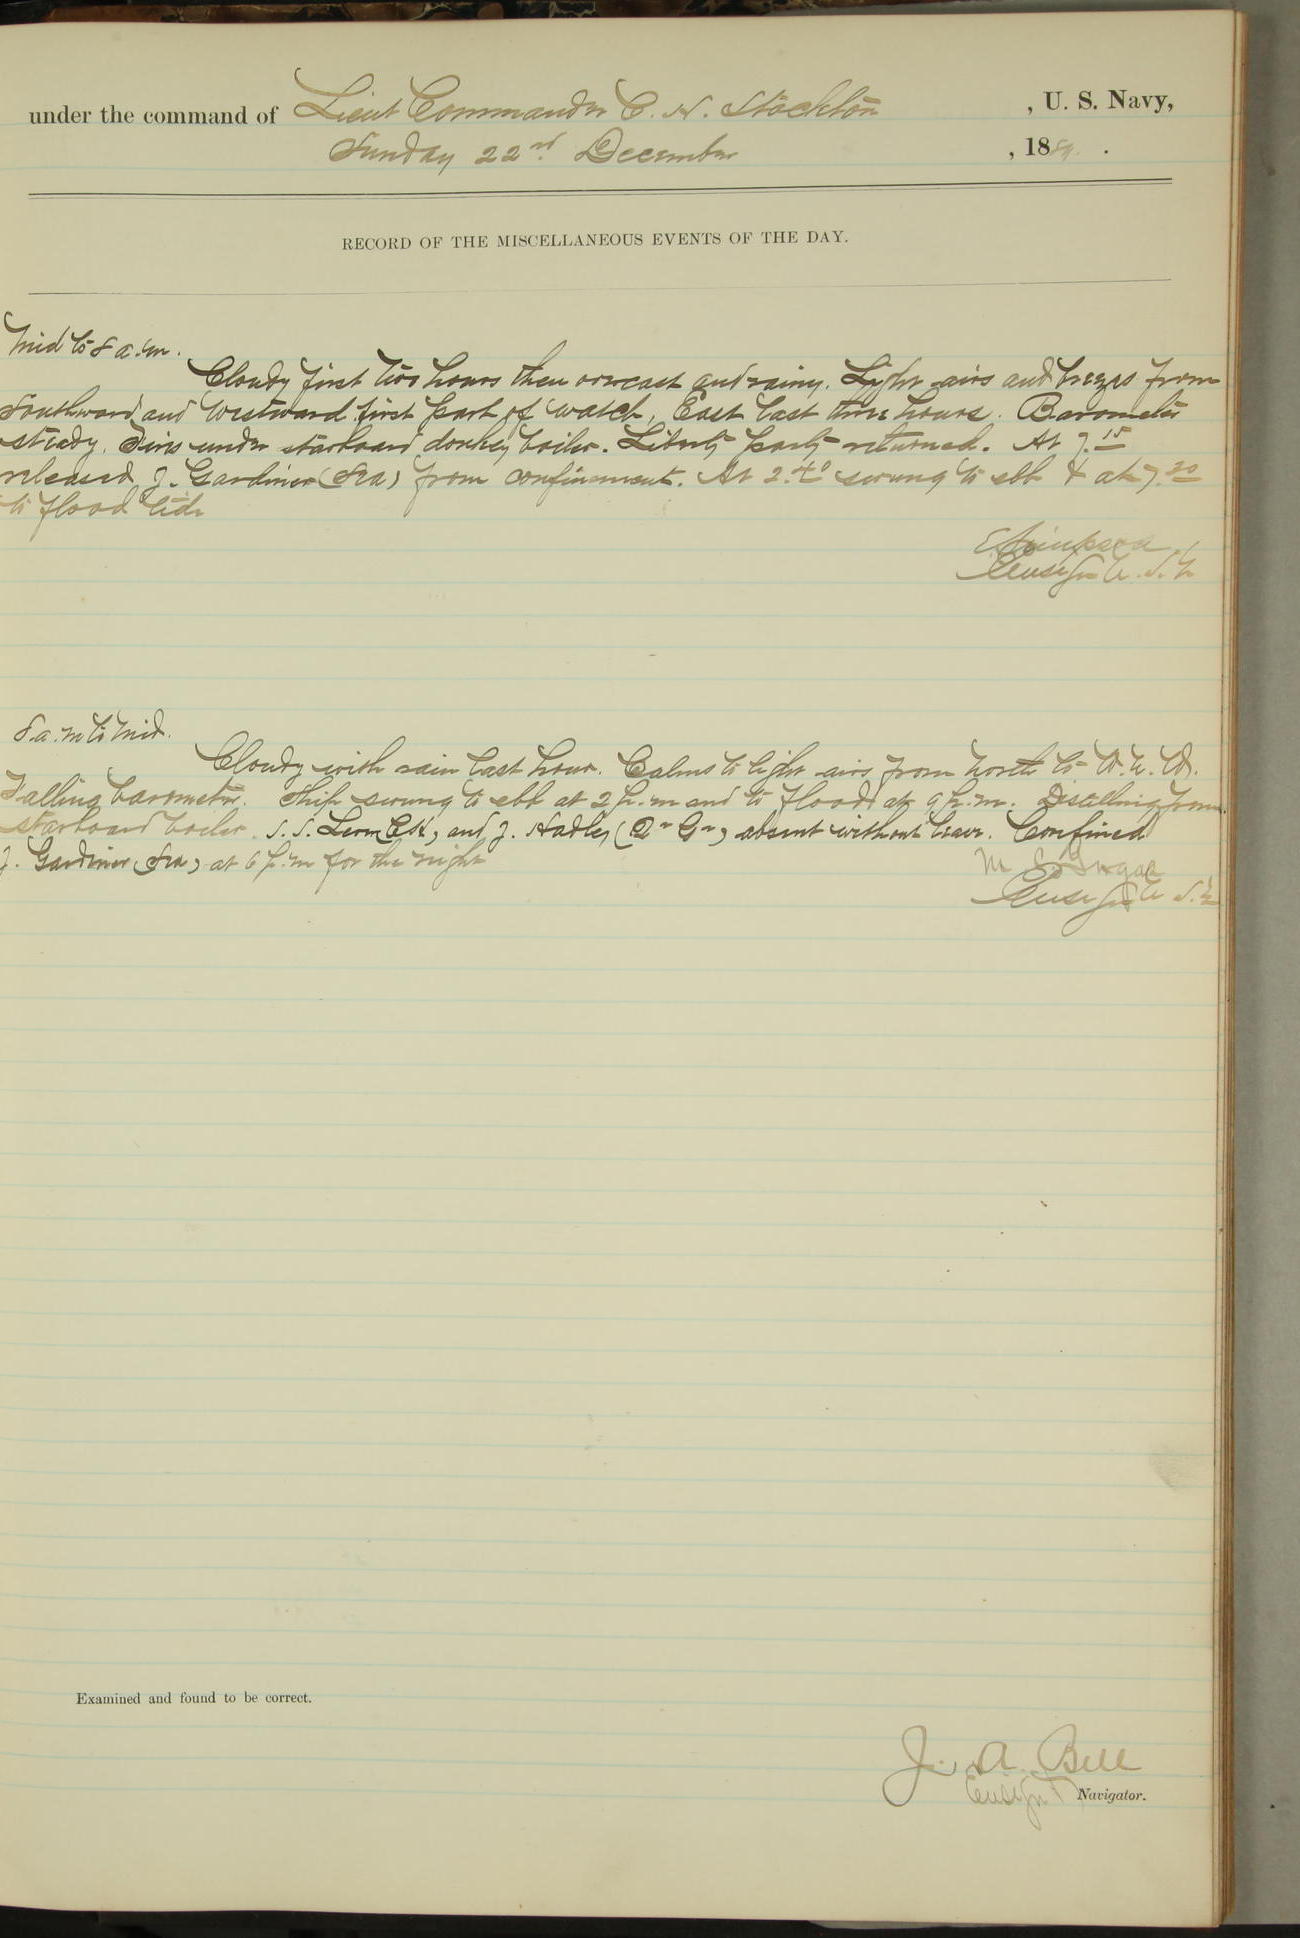 under the command of Lieut Commander C. H. Stockton , U. S. Navy,
Sunday 22nd December , 1889 .
RECORD OF THE MISCELLANEOUS EVENTS OF THE DAY.
Mid to 8 a.m.
Cloudy first two hours then overcast and rainy. Light airs and breezes from
Southward and Westward first part of watch, East last three hours. Barometer
steady. Fires under starboard donkey boiler. Liberty party returned. At 7.15
released J. Gardiner (Sea) from confinement. At 2.40 swung to ebb & at 7.20
to flood tide
E Simpson
Ensign U.S.N
8 a.m to Mid.
Cloudy with rain last hour. Calms to light airs from North to W.N.W.
Falling barometer. Ship swung to ebb at 2 p.m and to flood at 9 p.m. Distilling from
starboard boiler. S. S. and J. Hadley (Qr Gr) absent without leave. Confined
J. Gardiner (Sea) at 6 p.m for the night
Ensign U.S.N
Examined and found to be correct.
J. A. Bell
Ensign Navigator.